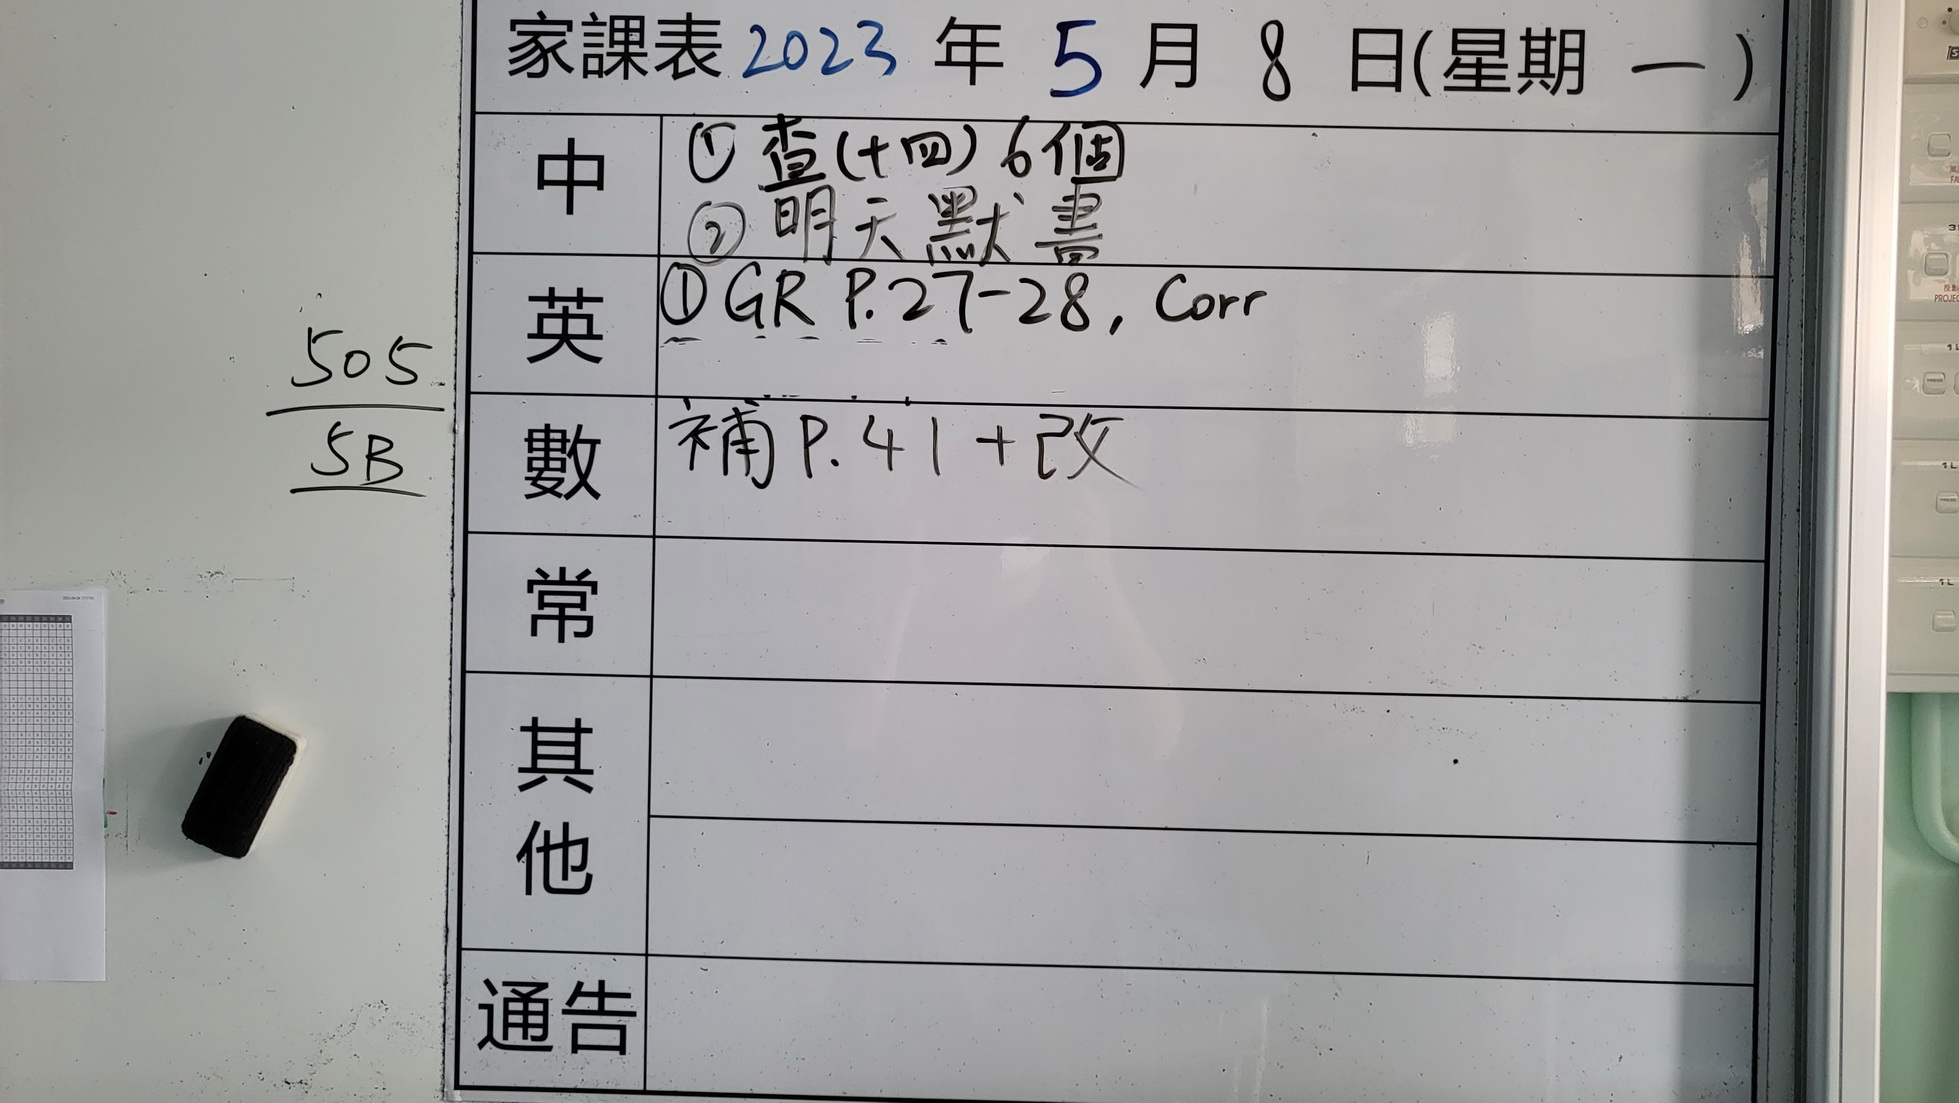 家課表 2023 年 5 月 8 日(星期 一)
中
① 查(十四) 6個
② 明天默書
英
① GR P.27-28, Corr
505
5B
數
補 P.41 + 改
常
其他
通告